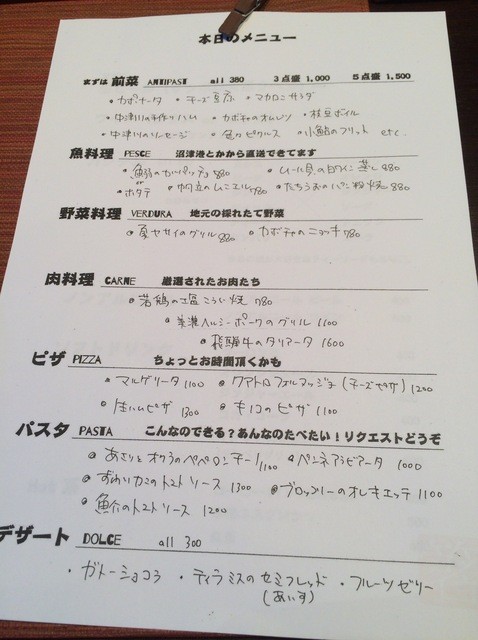 本日のメニュー
まずは 前菜 ANTIPAST all 380 3点盛 1,000 5点盛 1,500
・カポナータ ・チーズ豆腐 ・マカロニサラダ
・中津川の手作りハム ・カボチャのオムレツ ・枝豆ボイル
・中津川のソーセージ ・色々ピクルス ・小鮎のフリット etc.
魚料理 PESCE 沼津港とかから直送できてます
・魚のカルパッチョ 880 ・ムール貝の白ワイン蒸し 880
ホタテ ・帆立のムニエル 780 ・たちうおのパン粉焼 880
野菜料理 VERDURA 地元の採れたて野菜
・夏ヤサイのグリル 880 ・カボチャのニョッキ 780
肉料理 CARNE 厳選されたお肉たち
・若鶏の塩こうじ焼 780
・美濃ヘルシーポークのグリル 1100
・飛騨牛のタリアータ 1600
ピザ PIZZA ちょっとお時間頂くかも
・マルゲリータ 1100 ・クアトロフォルマッジョ (チーズピザ) 1200
・生ハムピザ 1300 ・キノコのピザ 1100
パスタ PASTA こんなのできる?あんなのたべたい!リクエストどうぞ
・あさりとオクラのペペロンチーノ 1100 ・ペンネアラビアータ 1000
・ずわいガニのトマトソース 1300 ・ブロッコリーのオレキエッテ 1100
・魚介のトマトソース 1200
デザート DOLCE all 300
・ガトーショコラ ・ティラミスのセミフレッド ・フルーツゼリー
(あいす)